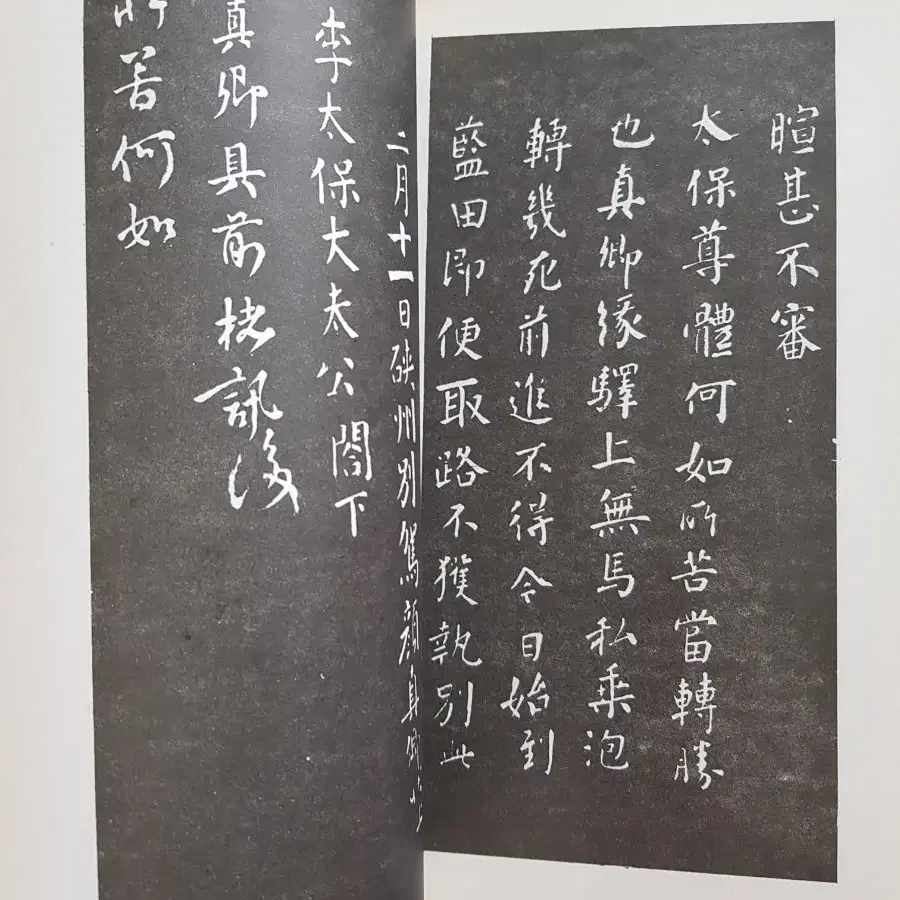 暄甚不審
太保尊體何如所苦當轉勝
也真卿緣驛上無馬私乘泡
轉幾死前進不得今日始到
藍田即便取路不獲執別此
二月十一日硤州別駕顏真卿狀上
李太保大夫公閤下
真卿具前訊後
所苦何如